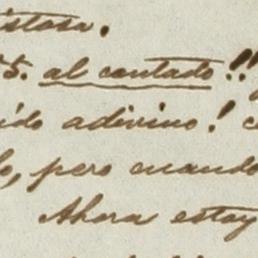 istosa.
5. al contado!!
ido adivino! c
lo, pero cuando
Ahora estoy